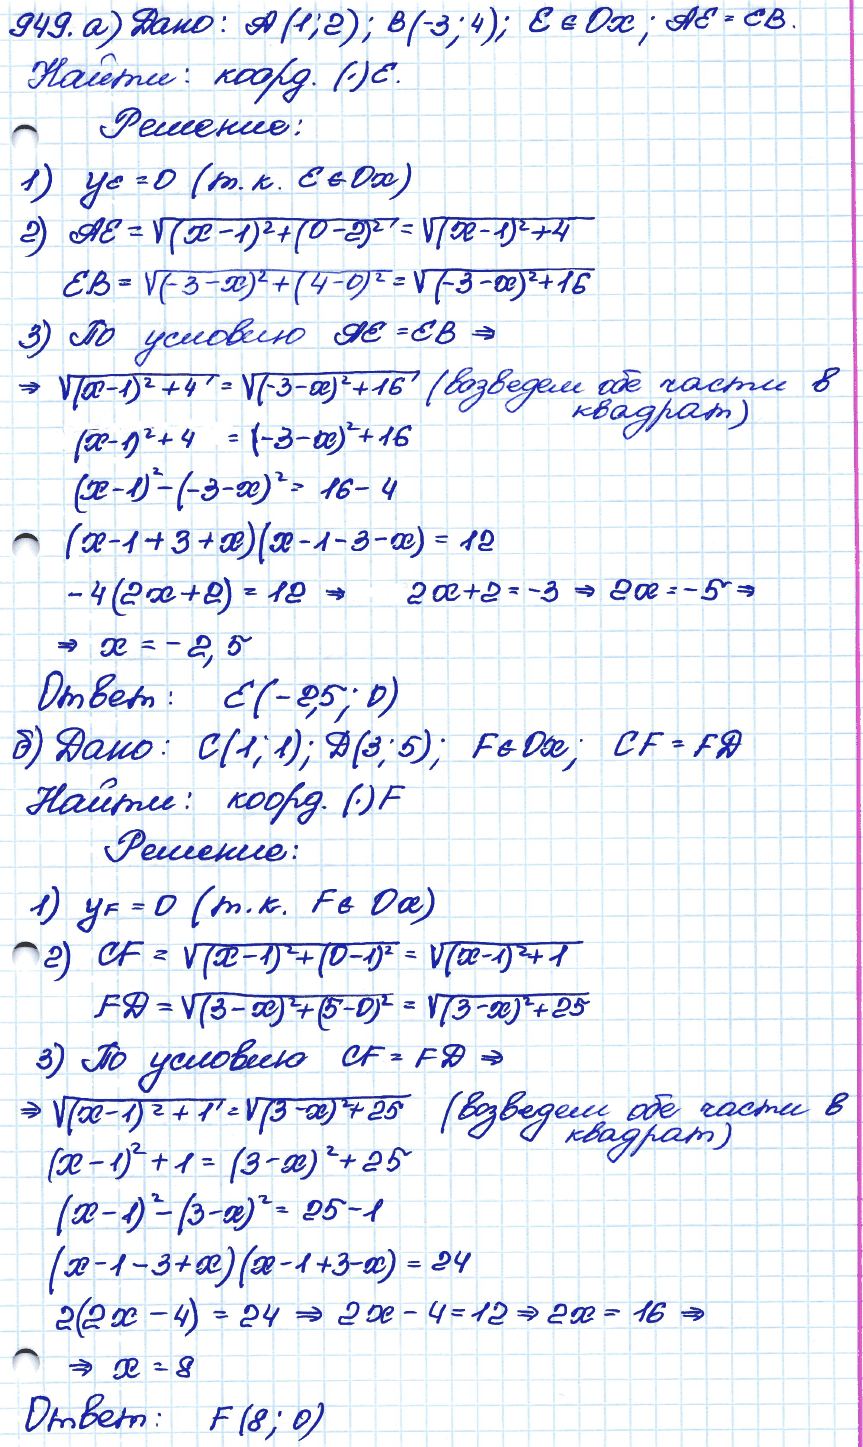 949. а) Дано: A(1;2); B(-3;4); E∈Ox; AE=EB.
Найти: коорд. (·)E.
Решение:
1) yE=0 (т.к. E∈Ox)
2) AE=√((x-1)²+(0-2)²)=√((x-1)²+4)
EB=√((-3-x)²+(4-0)²)=√((-3-x)²+16)
3) По условию AE=EB ⇒
⇒ √((x-1)²+4)=√((-3-x)²+16) (возведем обе части в
квадрат)
(x-1)²+4 = (-3-x)²+16
(x-1)²-(-3-x)²= 16-4
(x-1+3+x)(x-1-3-x)=12
-4(2x+2)=12 ⇒ 2x+2=-3 ⇒ 2x=-5 ⇒
⇒ x=-2,5
Ответ: E(-2,5; 0)
б) Дано: C(1;1); D(3;5); F∈Ox; CF=FD
Найти: коорд. (·)F
Решение:
1) yF=0 (т.к. F∈Ox)
2) CF=√((x-1)²+(0-1)²)=√((x-1)²+1)
FD=√((3-x)²+(5-0)²)=√((3-x)²+25)
3) По условию CF=FD ⇒
⇒ √((x-1)²+1)=√((3-x)²+25) (возведем обе части в
квадрат)
(x-1)²+1=(3-x)²+25
(x-1)²-(3-x)²=25-1
(x-1-3+x)(x-1+3-x)=24
2(2x-4)=24 ⇒ 2x-4=12 ⇒ 2x=16 ⇒
⇒ x=8
Ответ: F(8; 0)